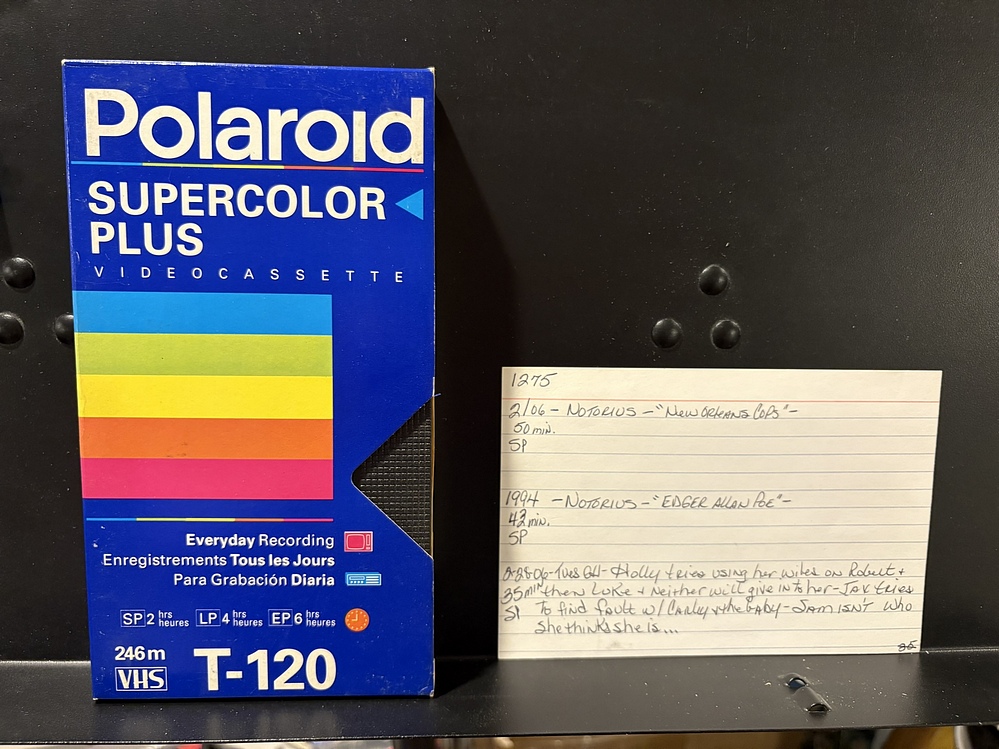 Polaroid
SUPERCOLOR
PLUS
VIDEOCASSETTE
Everyday Recording
Enregistrements Tous les Jours
Para Grabación Diaria
SP 2 hrs heures LP 4 hrs heures EP 6 hrs heures
246 m
VHS T-120
1275
2/06 - NOTORIUS - "NEW ORLEANS COPS" -
50 min.
SP
1994 - NOTORIUS - "EDGER ALLAN POE" -
42 min.
SP
2-28-06 - Tues GH - Holly tries using her wiles on Robert +
35 min then Luke + Neither will give in to her - Jax tries
SP To find fault w/ Carly + the baby - Sam isn't who
she thinks she is...